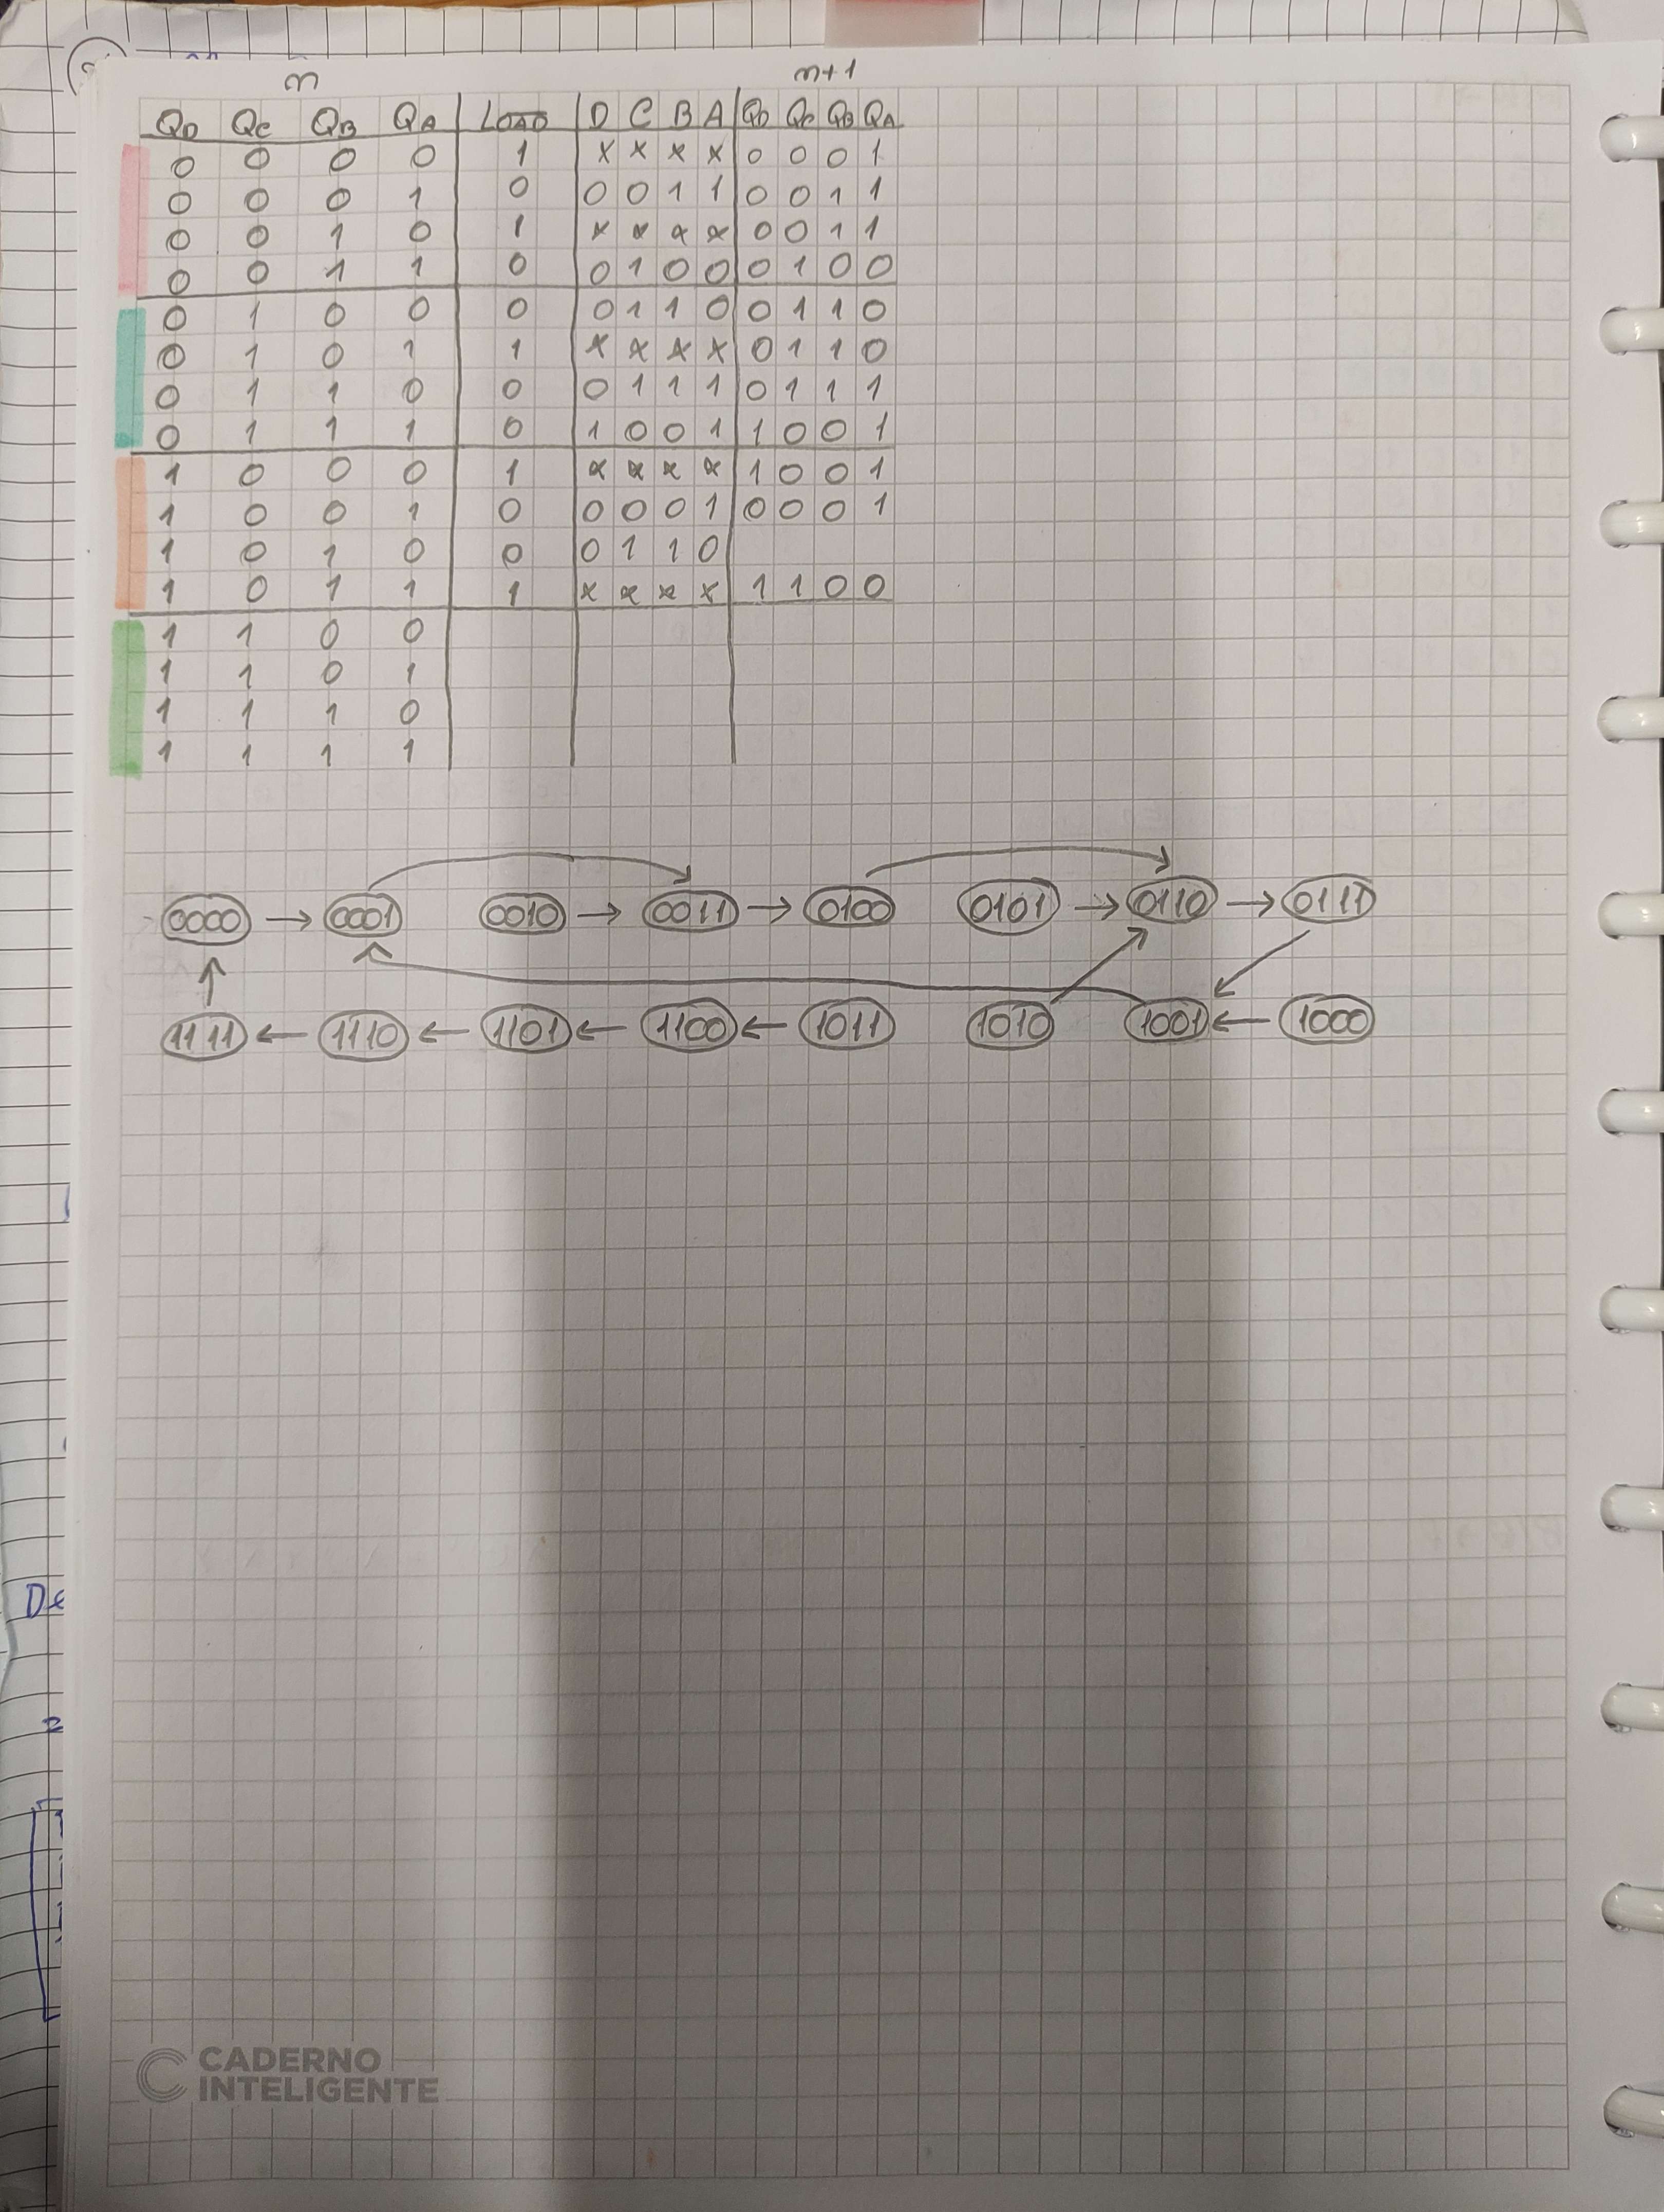 n n+1
QD QC QB QA LOAD D C B A QD QC QB QA
0 0 0 0 1 x x x x 0 0 0 1
0 0 0 1 0 0 0 1 1 0 0 1 1
0 0 1 0 1 x x x x 0 0 1 1
0 0 1 1 0 0 1 0 0 0 1 0 0
0 1 0 0 0 0 1 1 0 0 1 1 0
0 1 0 1 1 x x x x 0 1 1 0
0 1 1 0 0 0 1 1 1 0 1 1 1
0 1 1 1 0 1 0 0 1 1 0 0 1
1 0 0 0 1 x x x x 1 0 0 1
1 0 0 1 0 0 0 0 1 0 0 0 1
1 0 1 0 0 0 1 1 0
1 0 1 1 1 x x x x 1 1 0 0
1 1 0 0
1 1 0 1
1 1 1 0
1 1 1 1
0000 → 0001 0010 → 0011 → 0100 0101 → 0110 → 0111
1111 ← 1110 ← 1101 ← 1100 ← 1011 1010 1001 ← 1000
De
2
CADERNO
INTELIGENTE